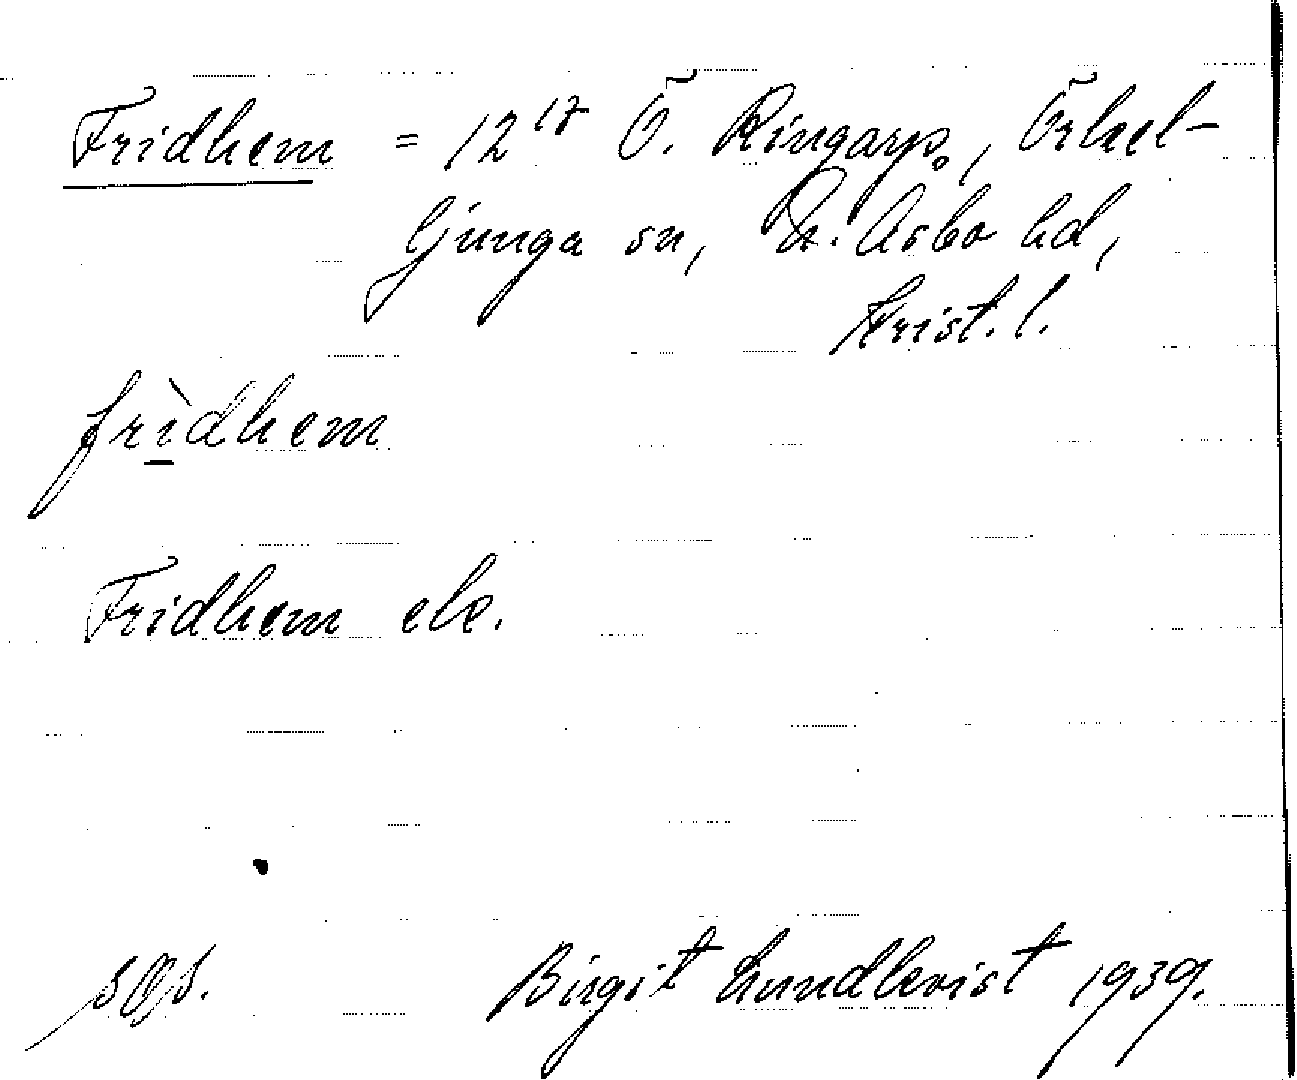 Fridhem = 12¹⁷ Ö. Ringarp, Örkel-
ljunga sn, N. Åsbo hd,
Krist. l.
frìdhem
Fridhem ek.
sOs.
Birgit Lundkvist 1939.